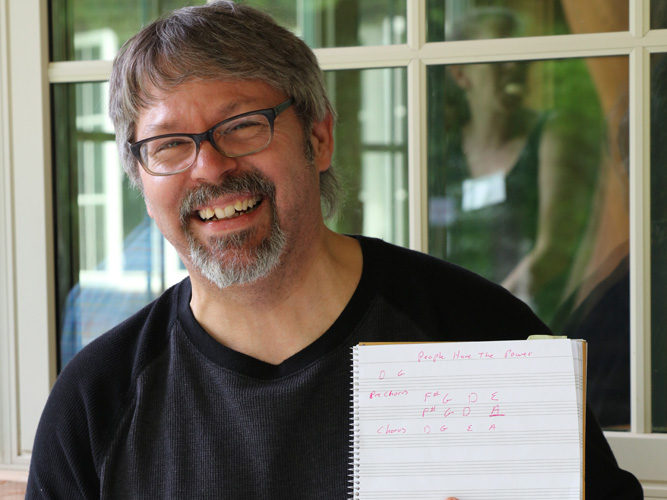 People Have The Power
D G
Pre Chorus F# G D E
F# G D A
Chorus D G E A